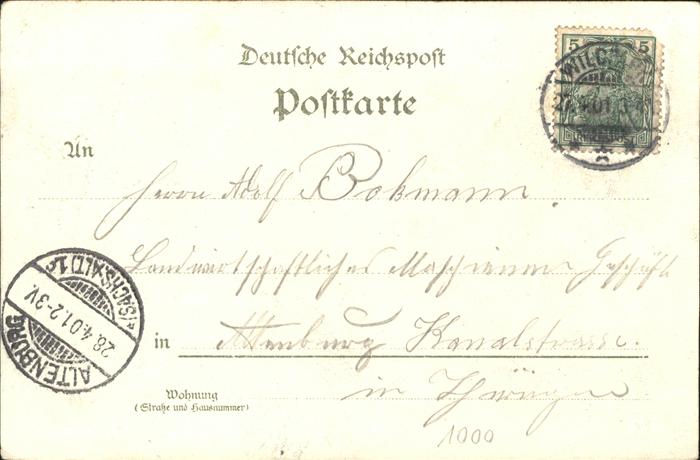 Deutsche Reichspost
Postkarte
5 5
27.4.01
An
Herrn Adolf Bokmann
Landwirtschaftliches Maschienen Geschäft
in Altenburg Kanalstrasse.
in Thüringen
Wohnung
(Straße und Hausnummer)
1000
ALTENBURG
28.4.01.2-3V.
*(SACHS.ALT)1c